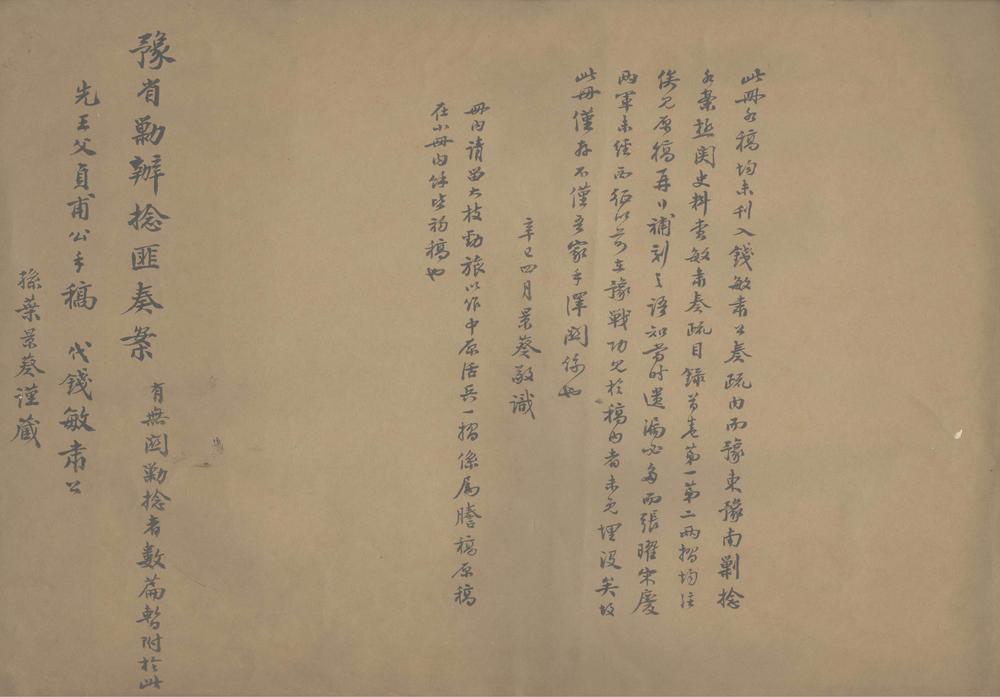 此册各稿均未刊入錢敏肅公奏疏内而豫東豫南剿捻
各案極関史料查敏肅奏疏目錄首卷第一第二兩摺均註
俟覓原稿再日補刻之語知當时遺漏必多而張曜宋慶
兩軍未經西征以前在豫戰功見於稿内者未免埋没矣故
此册僅存不僅吾家手澤関係也
辛巳四月景葵敬識
册内請留大枝勁旅以作中原活兵一摺係属謄稿原稿
在小册内餘皆初稿也
豫省勦辦捻匪奏案 有無関勦捻者數篇暫附於此
先王父貞甫公手稿 代錢敏肅公
孫葉景葵謹藏